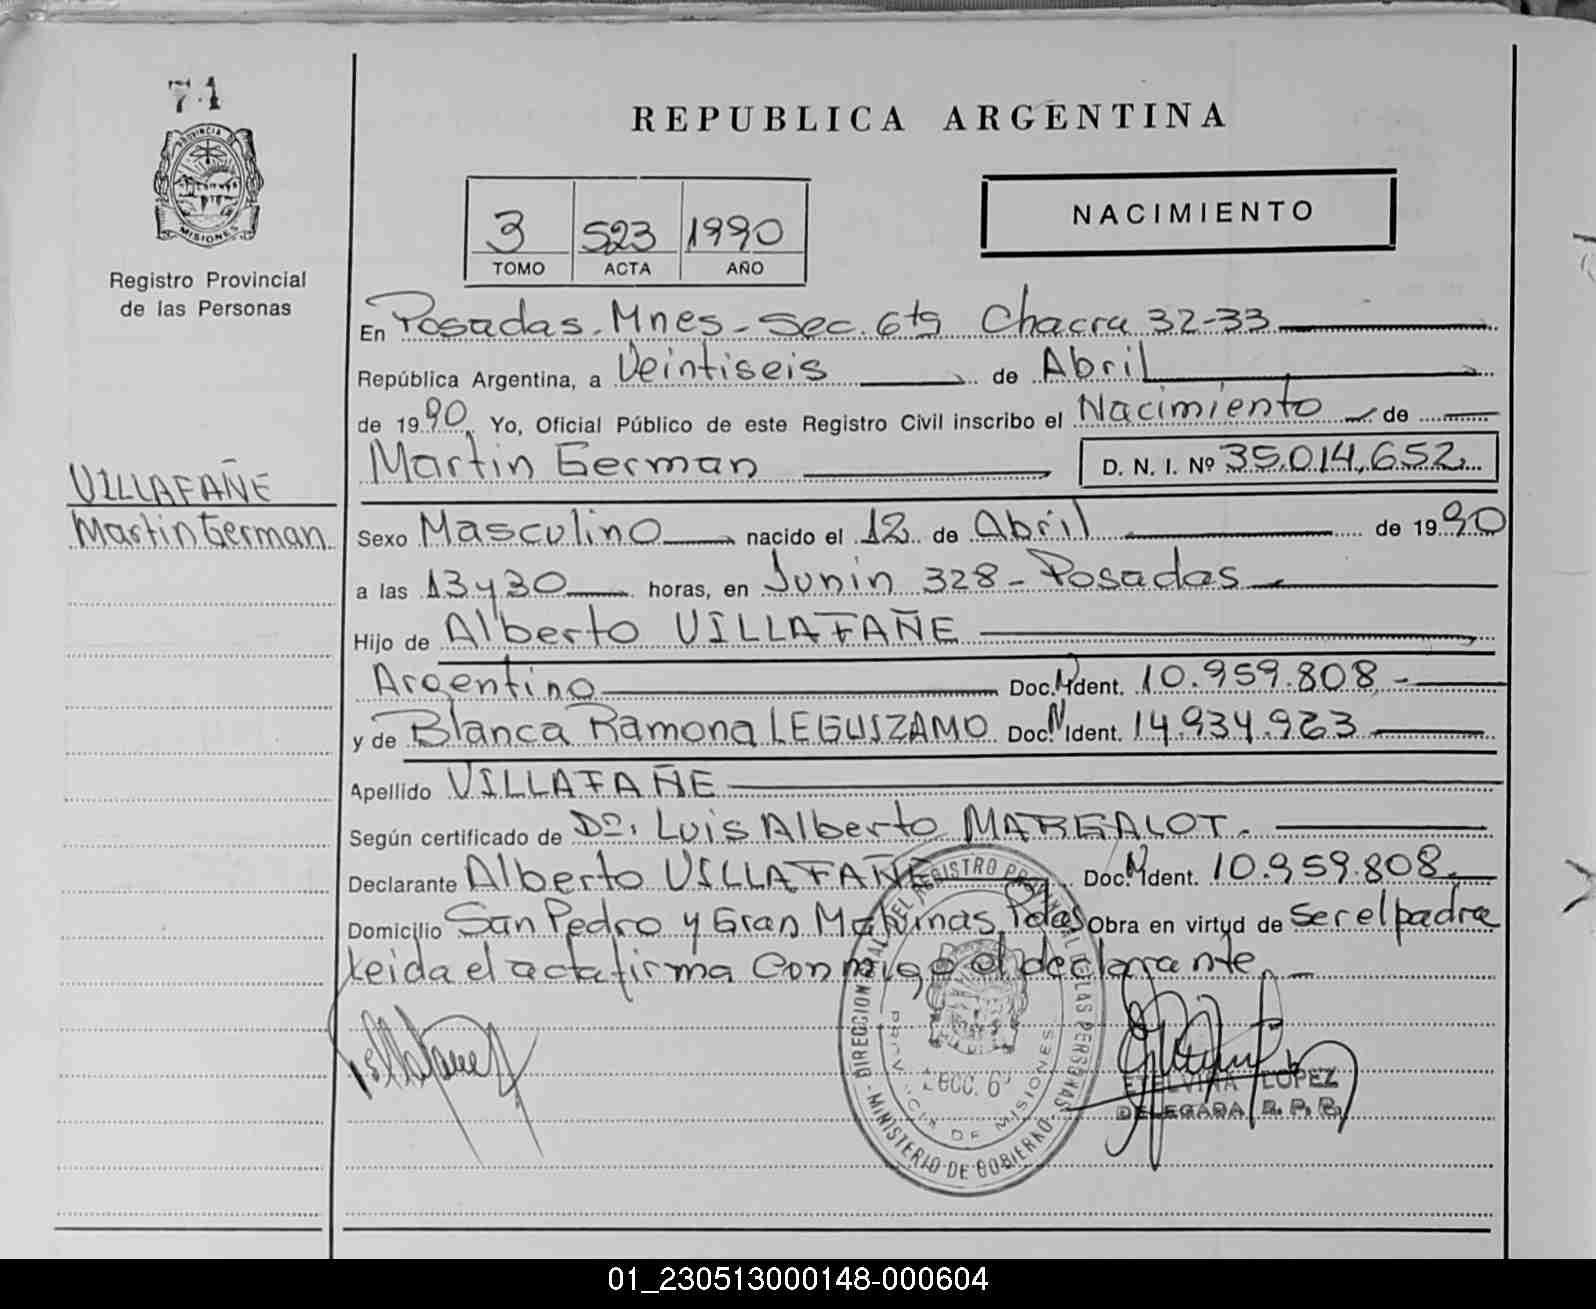 74
PROVINCIA DE
MISIONES
Registro Provincial
de las Personas
VILLAFAÑE
Martin German
REPUBLICA ARGENTINA
3 523 1990
TOMO ACTA AÑO
NACIMIENTO
En Posadas. Mnes - Sec. 6ta Chacra 32-33
República Argentina, a Veintiseis de Abril
de 1990. Yo, Oficial Público de este Registro Civil inscribo el Nacimiento de
Martin German D. N. I. Nº 35.014.652
Sexo Masculino nacido el 12 de Abril de 1990
a las 13 y 30 horas, en Junin 328 - Posadas
Hijo de Alberto VILLAFAÑE
Argentino Doc. N Ident. 10.959.808.-
y de Blanca Ramona LEGUIZAMO Doc. N Ident. 14.934.963
Apellido VILLAFAÑE
Según certificado de Dr. Luis Alberto MARGALOT.
Declarante Alberto VILLAFAÑE Doc. N Ident. 10.959.808.
Domicilio San Pedro y Gran Malvinas, Pdas Obra en virtud de Ser el padre
Leida el acta firma Conmigo el declarante.
DIRECCION GRAL. DEL REGISTRO PROVINCIAL DE LAS PERSONAS
SECC. 6ª
PROVINCIA DE MISIONES
MINISTERIO DE GOBIERNO
ETELVINA LOPEZ
DELEGADA R. P. P.
01_230513000148-000604